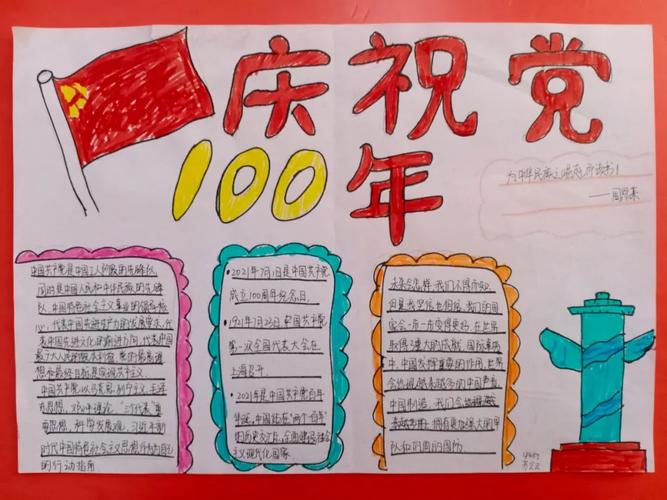 庆祝党
100年
为中华民族之崛起而读书!
——周恩来
中国共产党是中国工人阶级的先锋队,
同时是中国人民和中华民族的先锋
队,中国特色社会主义事业的领导核
心,代表中国先进生产力的发展要求,代
表中国先进文化的前进方向,代表中国
最广大人民的根本利益。党的最高理
想和最终目标是实现共产主义。
中国共产党以马克思列宁主义、毛泽
东思想、邓小平理论、"三个代表"重
要思想、科学发展观、习近平新
时代中国特色社会主义思想作为自己
的行动指南
2021年7月1日是中国共产党
成立100周年纪念日。
1921年7月23日中国共产党
第一次全国代表大会在
上海召开。
2021年是中国共产党百年
华诞。中国站在"两个一百年"
的历史交汇点,全面建设社会
主义现代化国家
未来会怎样,我们不得而知。
但我坚信
国家会一步一步变得更好,在世界
取得
中,中国发挥重要的作用,世界
会
中国制造,我们会
拥有更加强大的军
队和